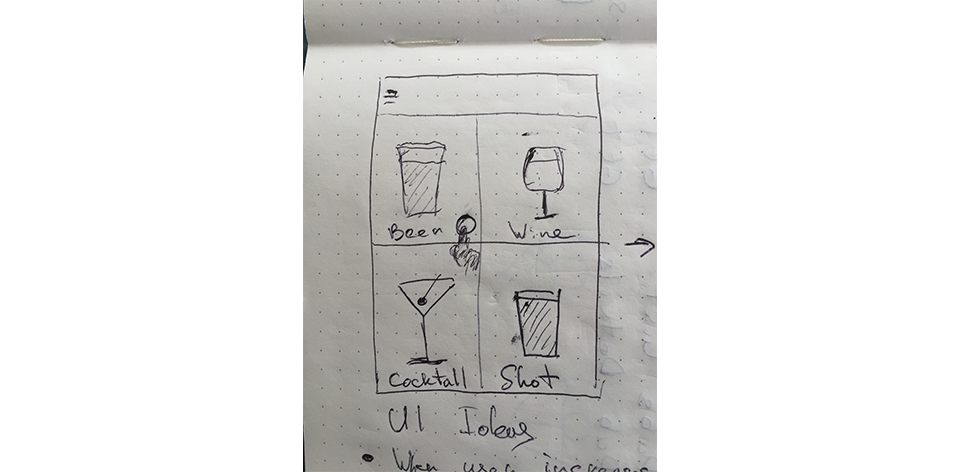 Beer Wine
Cocktail Shot
UI Ideas
• When user increase